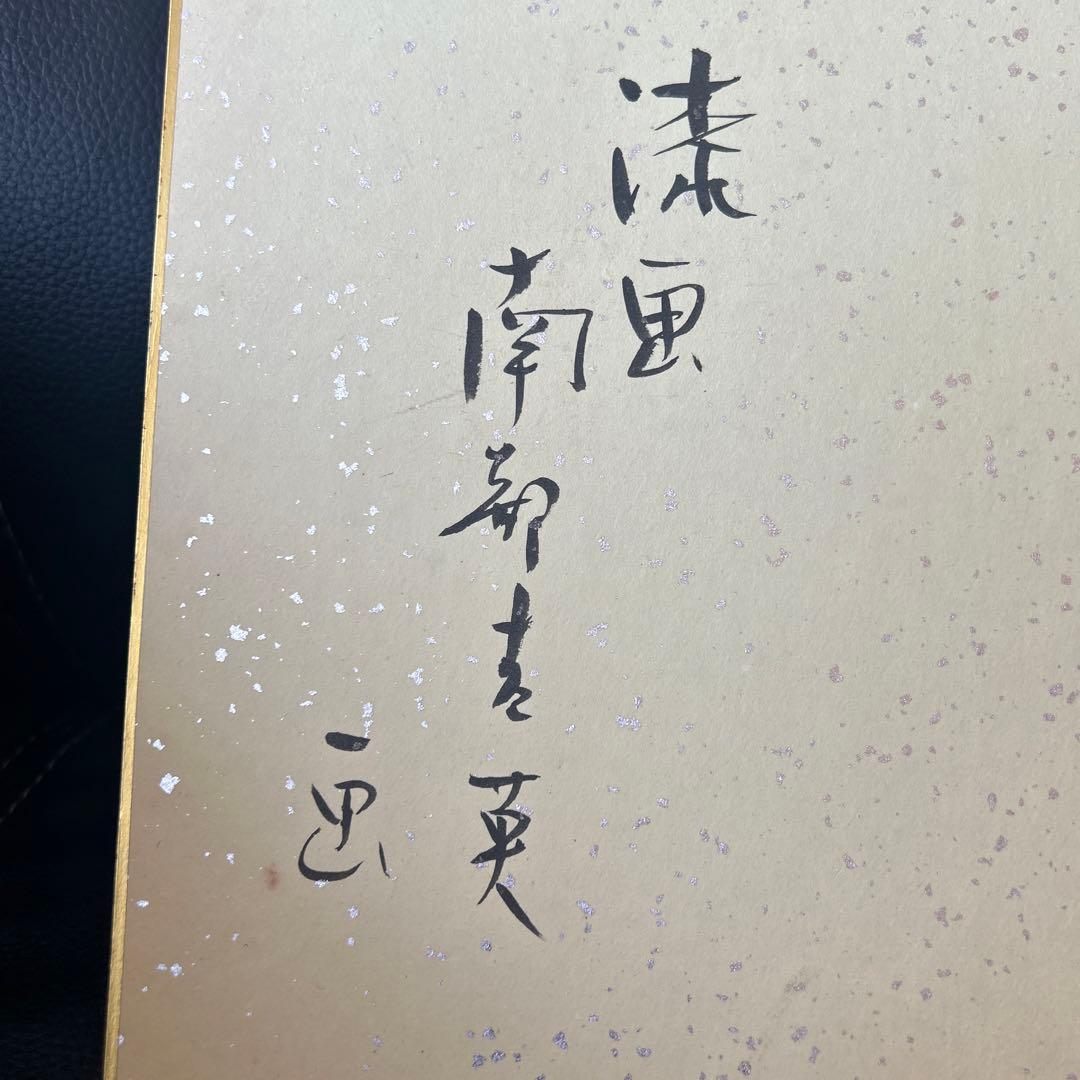 漆画
南部吉英
画